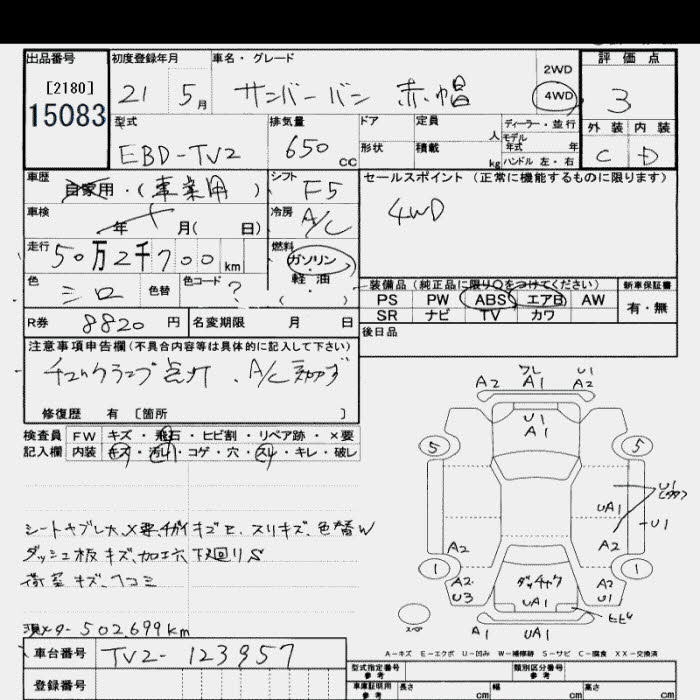 出品番号 初度登録年月 車名・グレード 2WD 評価点
[2180] 21 5月 サンバーバン 赤帽 4WD 3
15083 型式 排気量 ドア 定員 人 ディーラー・並行 外装 内装
EBD-TV2 650 CC 形状 積載 kg モデル年式 年 ハンドル 左・右 C D
車歴 自家用・(事業用) シフト F5 セールスポイント (正常に機能するものに限ります)
車検 年 月( 日) 冷房 A/C 4WD
走行 50万2千700km 燃料 ガソリン・軽油 ( )
色 シロ 色替 色コード ? 装備品 (純正品に限り○をつけてください) 新車保証書
PS PW ABS エアB AW 有・無
R券 8820円 名変期限 月 日 SR ナビ TV カワ
後日品
注意事項申告欄 (不具合内容等は具体的に記入して下さい)
チェックランプ点灯、A/C効かず
修復歴 有 [箇所 ]
検査員 FW キズ・飛石・ヒビ割・リペア跡・×要
記入欄 内装 キズ・汚れ・コゲ・穴・スレ・キレ・破レ
シートヤブレ大
キズ、スリキズ、色替W
ダッシュ板キズ、加工穴 下回りS
荷室キズ、ヘコミ
現メーター502,699km
車台番号 TV2-123957
登録番号
ワレ
A2 A1 U1 A2
U1
A1
5 5
U1
UA1
U1
A2 A2
1 1
A2 U3 A2 U1
UA1
ヒビ
スペア
A1 UA1
A-キズ E-エクボ U-凹み W-補修跡 S-サビ C-腐食 XX-交換済
型式指定番号 参考 類別区分番号 参考
車庫証明用 参考 長さ cm 幅 cm 高さ cm